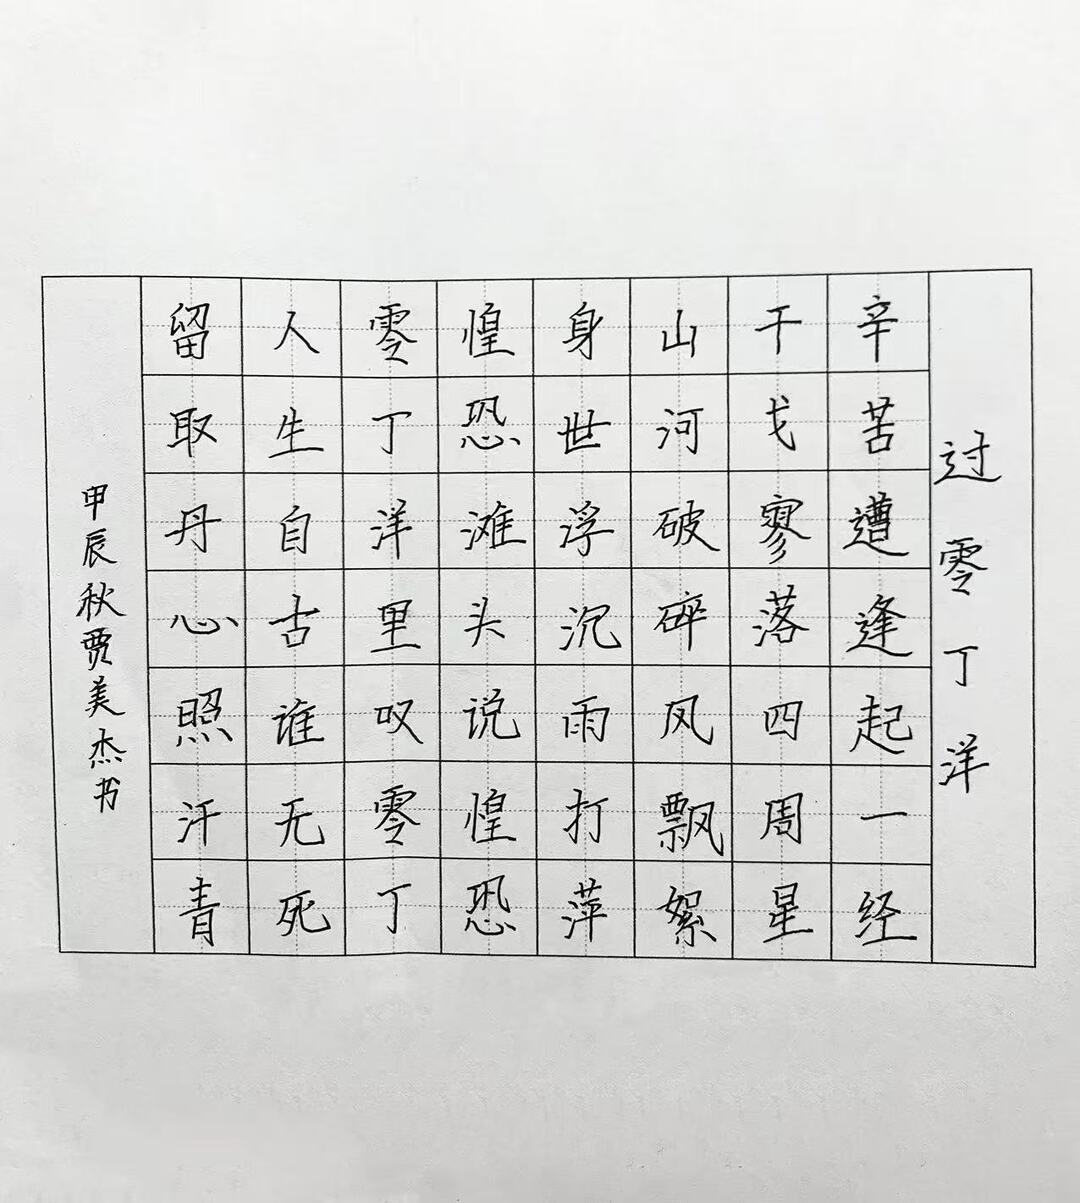 过零丁洋
辛苦遭逢起一经
干戈寥落四周星
山河破碎风飘絮
身世浮沉雨打萍
惶恐滩头说惶恐
零丁洋里叹零丁
人生自古谁无死
留取丹心照汗青
甲辰秋贾美杰书